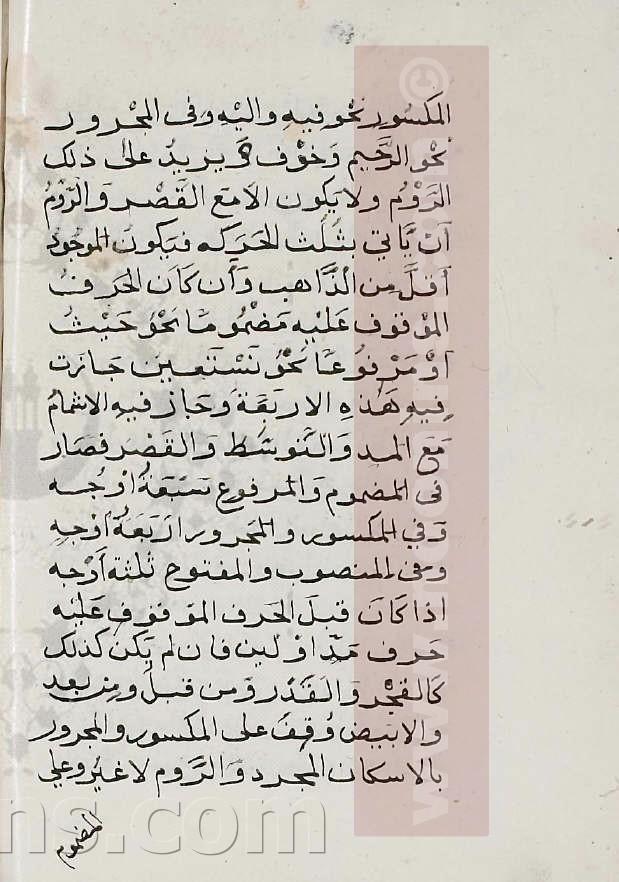 المكسور نحو فيه واليه وفى المجرور
نحو الرَّحيم وَخوْف كَ يزيدُ على ذلك
الرَّوْمُ ولا يكون الا مَعَ القَصْر وَالرَّوْمُ
اَنْ يَّاتي بثُلُث الحَرَكه فيَكونَ الموجودُ
اَقلَّ مِن الذَّاهبِ وَاَن كَانَ الحَرفُ
الموْقوف عَليْهِ مَضْمُومًا نحْوُ حَيْثُ
اَوْ مَرْفُوعًا نحْوُ نَسْتَعين جَازت
فِيهِ هَذهِ الاربَعَة وَجَاز فيهِ الاشمامُ
مَعَ المد وَالتَّوسُّط وَالقَصْر فصَار
فى المضموم وَالمرفوع سَبَعَةُ اَوْجُه
وَفي المكسور والمجرور ارْبَعَةُ اَوْجه
وفى المنصوب والمفتوح ثلثة اَوْجه
اذا كَانَ قبلَ الحَرف الموْقوف عَليْه
حَرف مَدّ اوْ لين فان لم يَكنْ كذلك
كَالفَجْر وَالقَدْر وَمن قبلُ ومِن بعد
والابيض وُقِفَ على المكسور والمجرور
بالاسكان المجرد وَالرَّوم لا غيْرُ وعلى
المضموم
ns.com
©